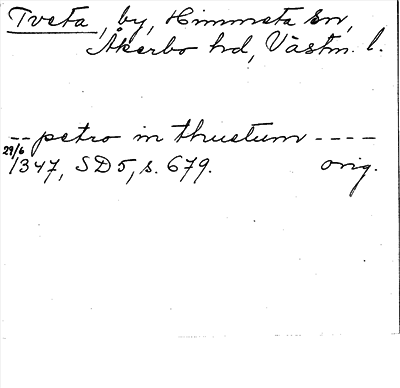 Tveta, by, Himmeta sn,
Åkerbo hd, Västm. l.
-- petro in thuetum ----
29/6 1347, SD 5, s. 679. orig.